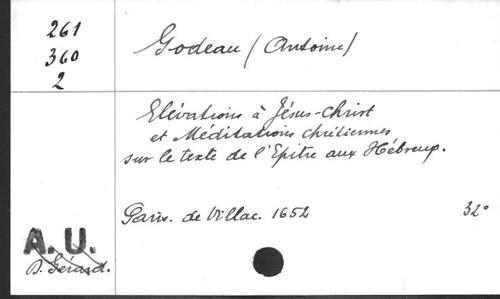 261
360
2
Godeau (Antoine)
Elévations à Jésus-Christ
et Méditations chrétiennes
sur le texte de l'Epitre aux Hébreux.
Paris. de Villac. 1652 32°
A.U.
D. Gérard.